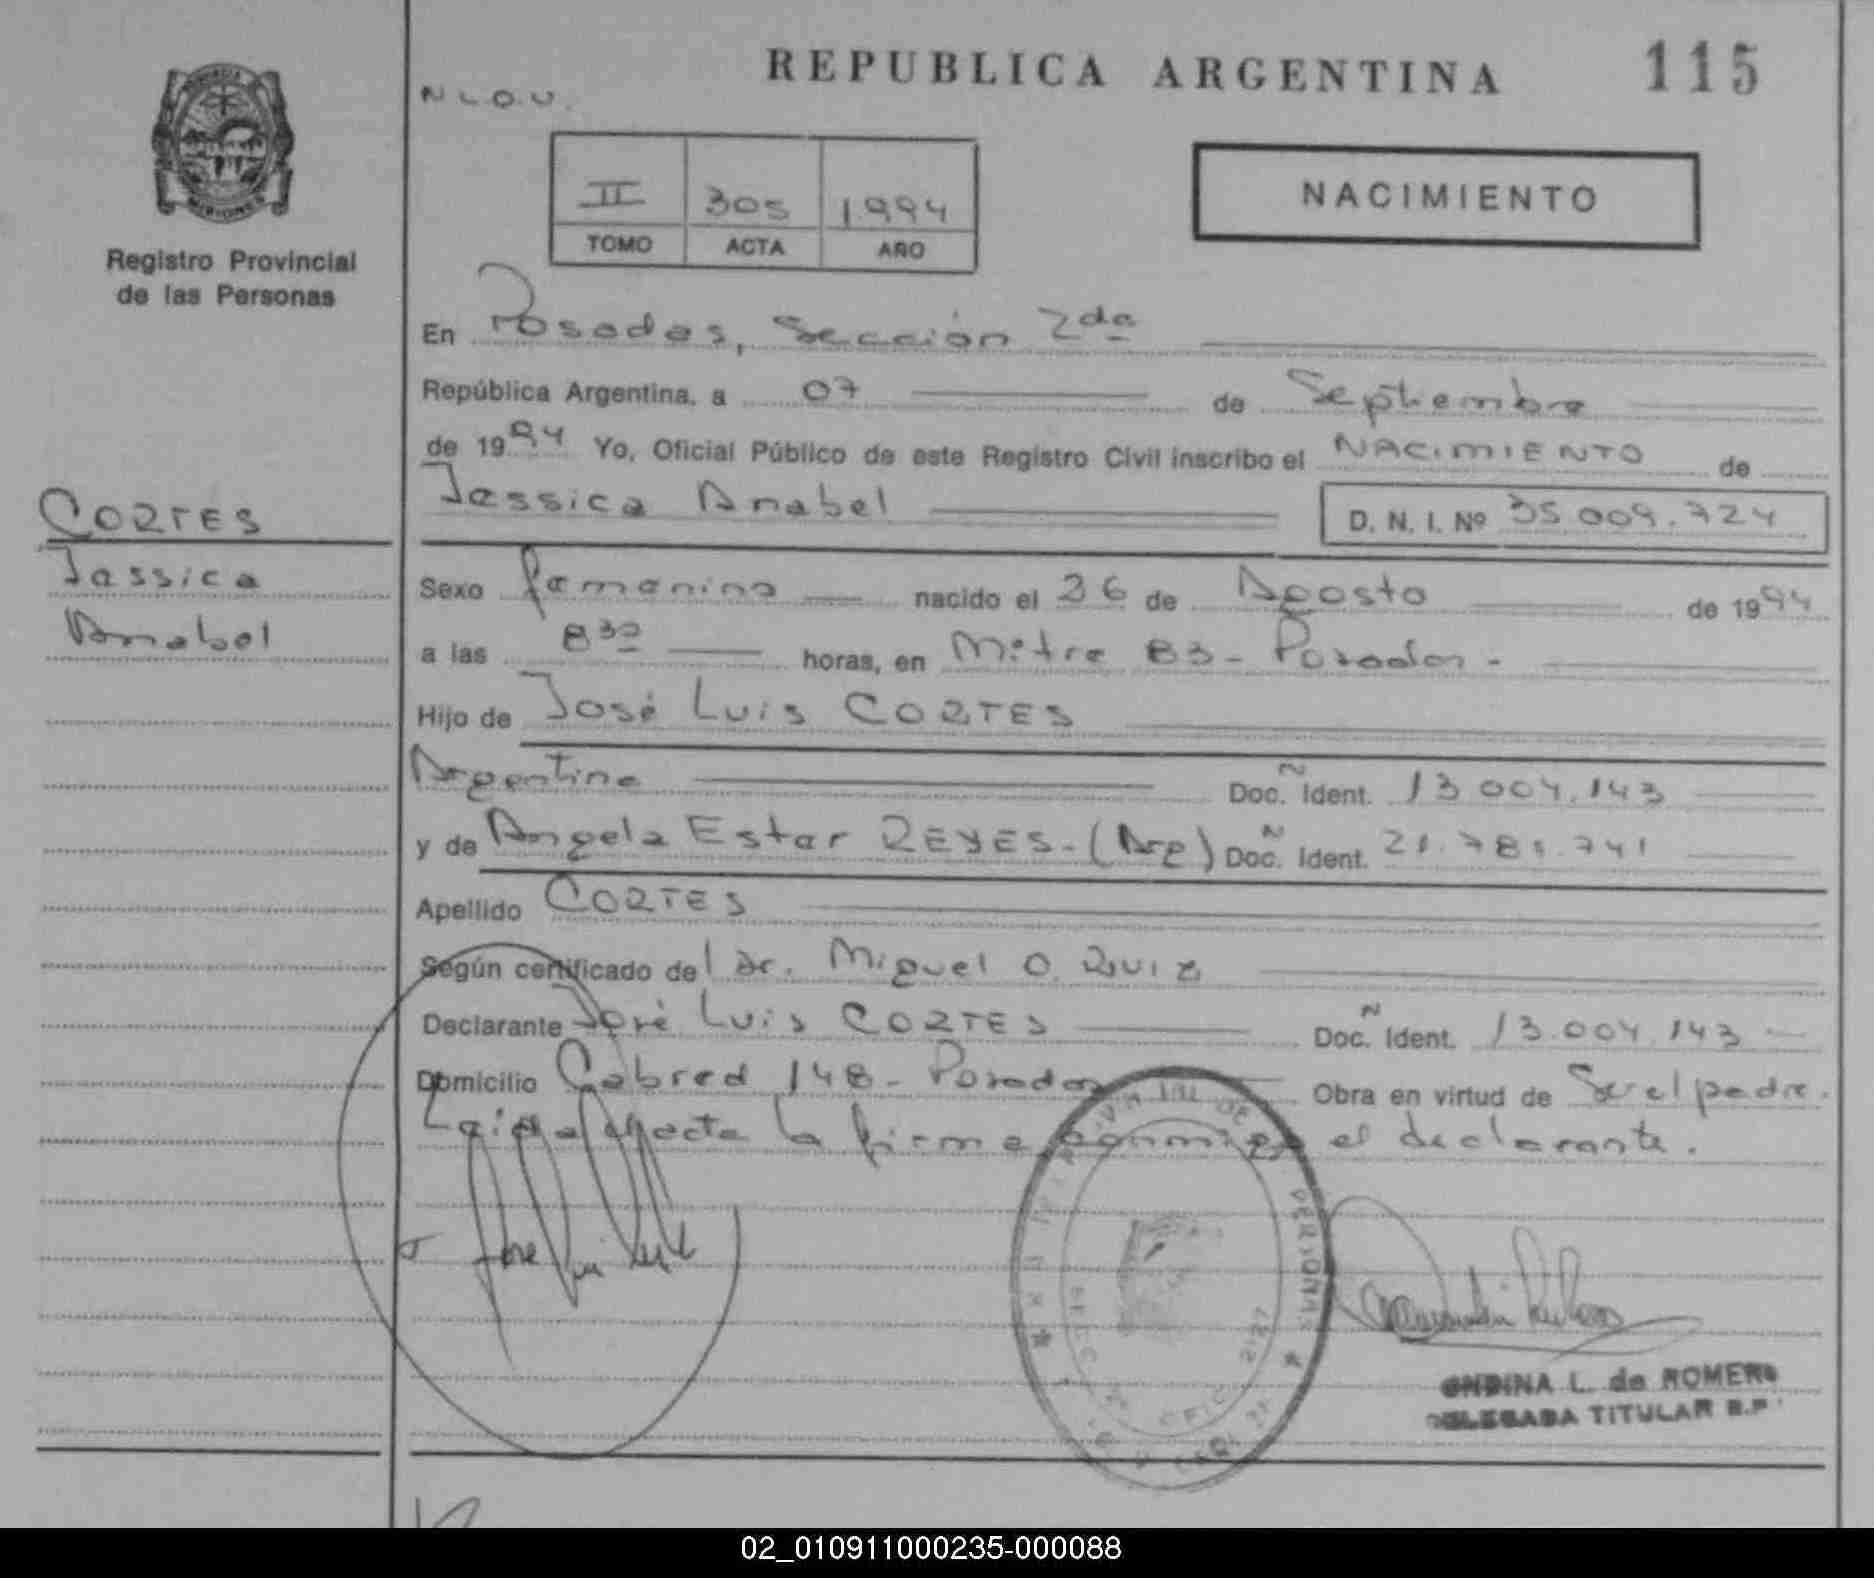 REPUBLICA ARGENTINA
115
N L.O.U.
II 305 1994
TOMO ACTA AÑO
NACIMIENTO
MISIONES
Registro Provincial
de las Personas
En Posadas, Sección 2da
República Argentina, a 07 de Septiembre
de 1994 Yo, Oficial Público de este Registro Civil inscribo el NACIMIENTO de
Jessica Anabel D. N. I. Nº 35 009.724
CORTES
Jessica
Anabel
Sexo femenino nacido el 26 de Agosto de 1994
a las 8 30 horas, en Mitre 83 - Posadas -
Hijo de José Luis CORTES
Argentina Doc. Ident. 13 004.143
y de Angela Ester REYES - (Arg) Doc. Ident. 21.781.741
Apellido CORTES
Según certificado del Dr. Miguel O. Ruiz
Declarante José Luis CORTES Doc. Ident. 13.004.143
Domicilio Cabred 148 - Posadas Obra en virtud de Ser el padre.
Leida el acta la firma conmigo el declarante.
PERSONAS
ONDINA L. de ROMERO
DELEGADA TITULAR R.P.
02_010911000235-000088